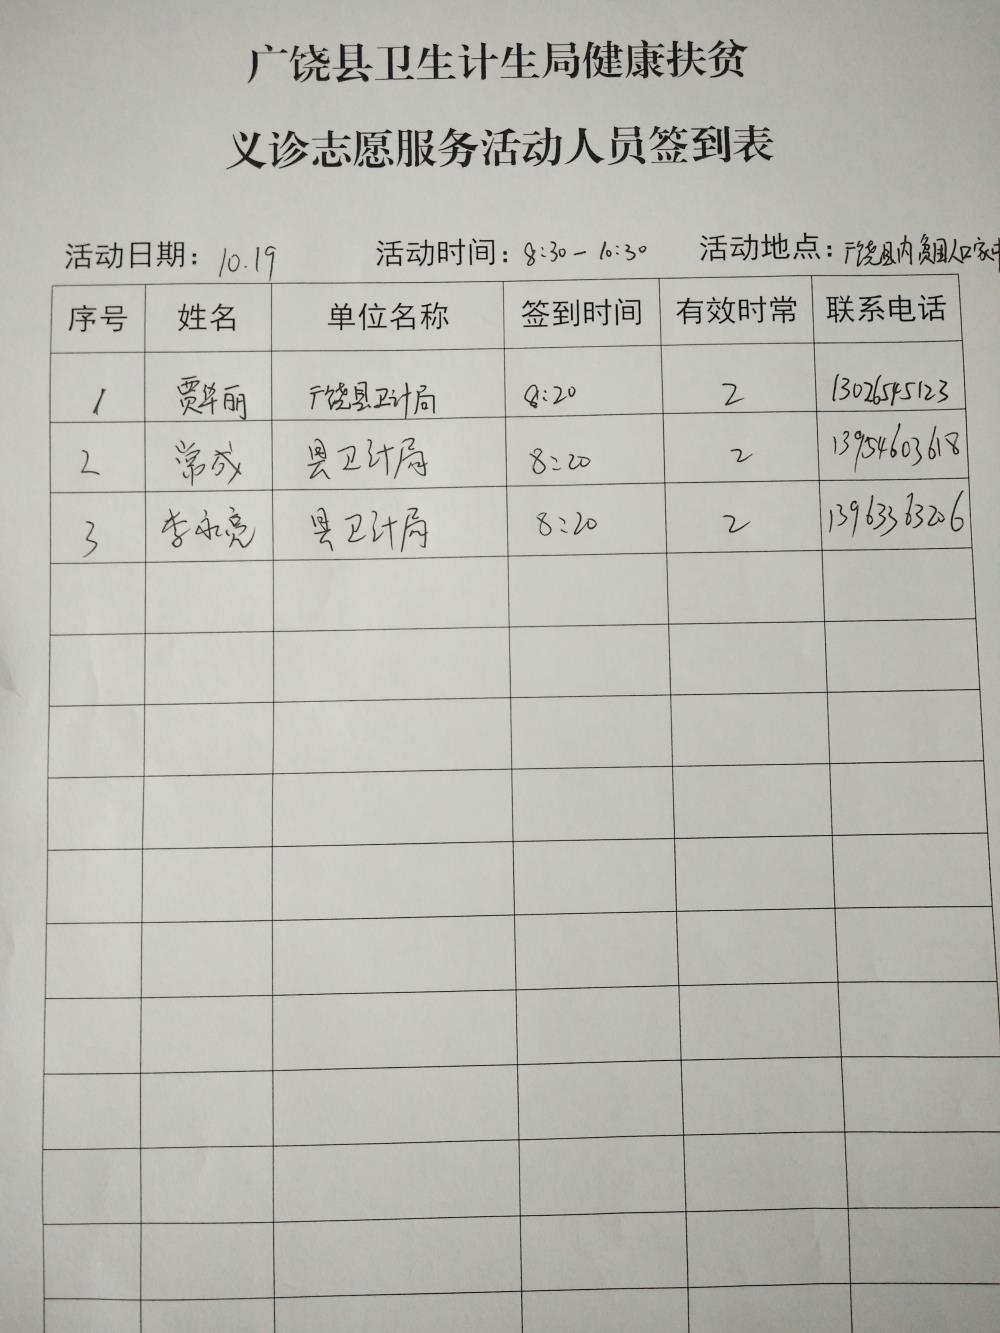 广饶县卫生计生局健康扶贫
义诊志愿服务活动人员签到表
活动日期：10.19 活动时间：8:30-10:30 活动地点：广饶县内贫困人口家中
序号 姓名 单位名称 签到时间 有效时常 联系电话
1 贾华丽 广饶县卫计局 8:20 2 13026545123
2 常成 县卫计局 8:20 2 13954603618
3 李永亮 县卫计局 8:20 2 13963363206